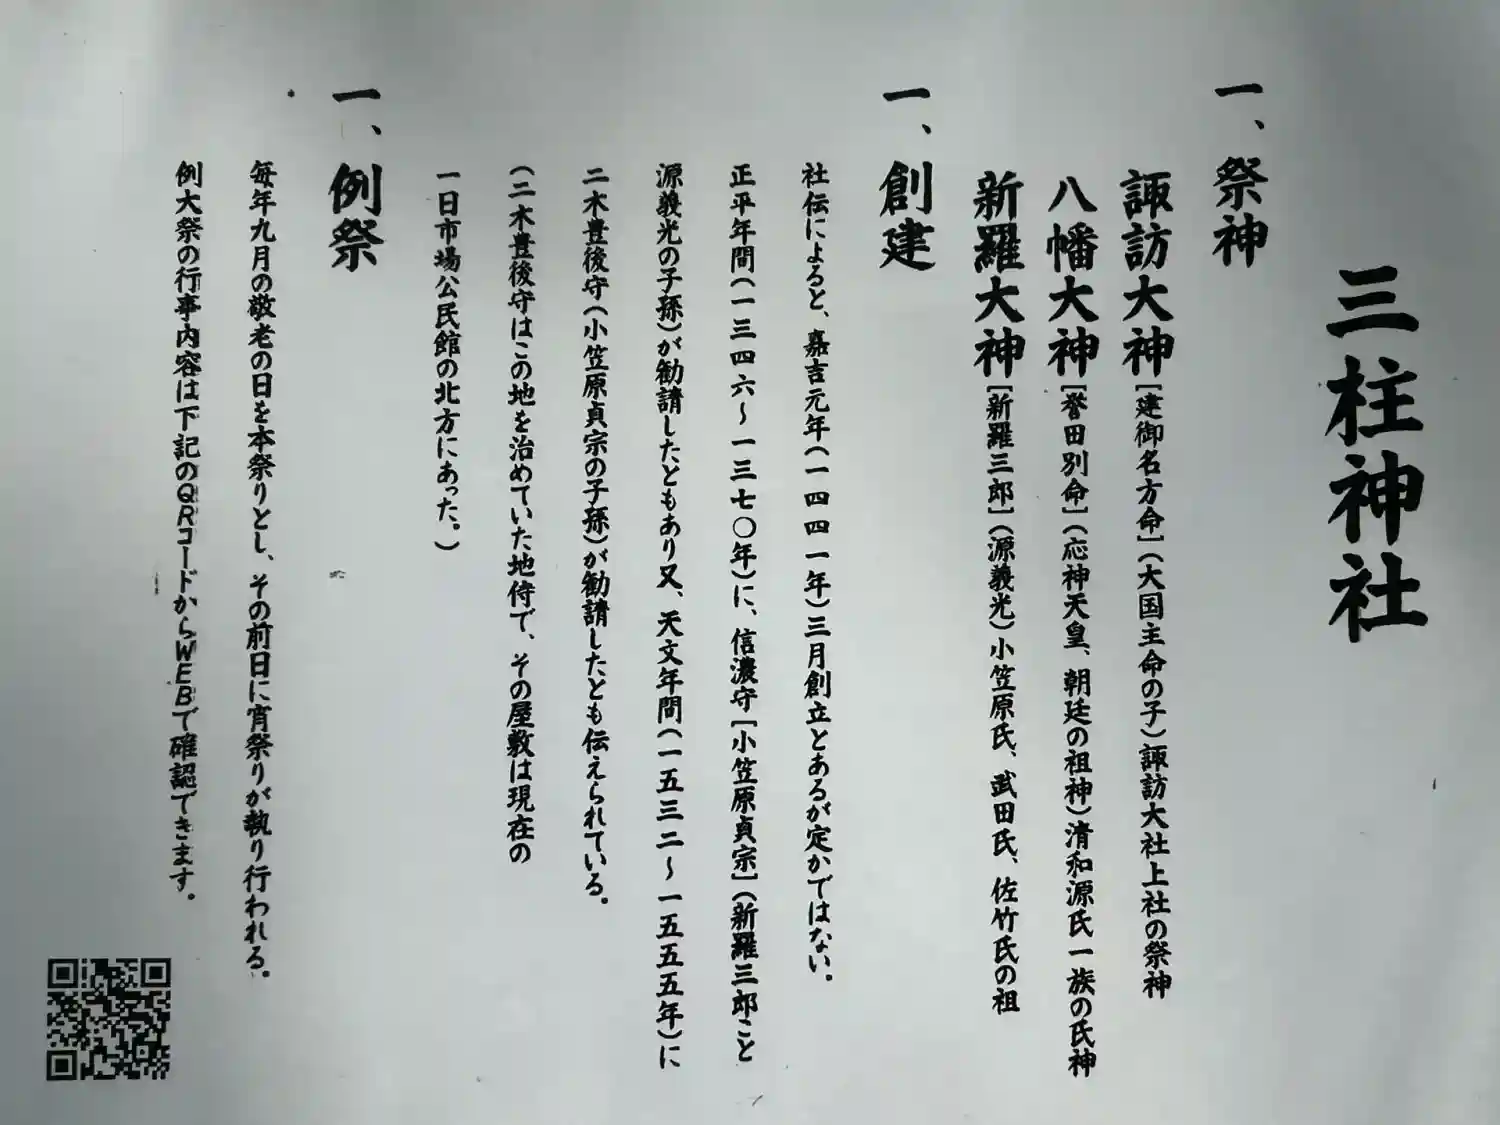 三柱神社
一、祭神
諏訪大神[建御名方命](大国主命の子)諏訪大社上社の祭神
八幡大神[誉田別命](応神天皇、朝廷の祖神)清和源氏一族の氏神
新羅大神[新羅三郎](源義光)小笠原氏、武田氏、佐竹氏の祖
一、創建
社伝によると、嘉吉元年(一四四一年)三月創立とあるが定かではない。
正平年間(一三四六～一三七〇年)に、信濃守[小笠原貞宗](新羅三郎こと
源義光の子孫)が勧請したともあり又、天文年間(一五三二～一五五五年)に
二木豊後守(小笠原貞宗の子孫)が勧請したとも伝えられている。
(二木豊後守はこの地を治めていた地侍で、その屋敷は現在の
一日市場公民館の北方にあった。)
一、例祭
毎年九月の敬老の日を本祭りとし、その前日に宵祭りが執り行われる。
例大祭の行事内容は下記のQRコードからWEBで確認できます。